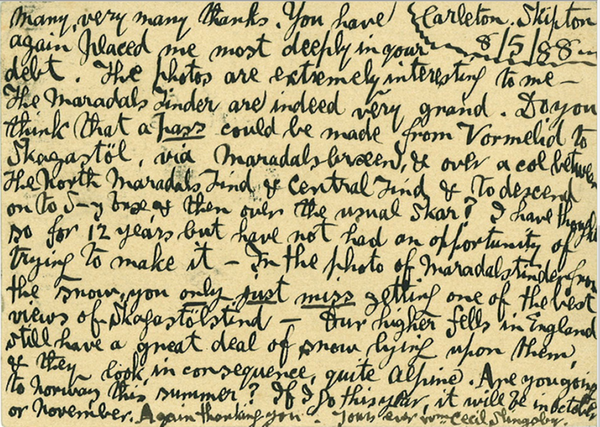 Many, very many thanks. You have
Carleton. Skipton
8/5/88
again placed me most deeply in your
debt. The photos are extremely interesting to me—
The Maradals Tinder are indeed very grand. Do you
think that a pass could be made from Vormelid to
Skagastöl, via Maradalsbraeen, & over a col between
the North Maradals Tind & Central Tind & to descend
on to & then over the usual Skar? I have thought
so for 12 years but have not had an opportunity of
trying to make it — In the photo of Maradalstinder from
the snow, you only just miss getting one of the best
views of Skagastölstind — Our higher fells in England
still have a great deal of snow lying upon them,
& they look, in consequence, quite Alpine. Are you going
to Norway this summer? If I go this year, it will be in October
or November. Again thanking you. Yours ever Wm Cecil Slingsby.